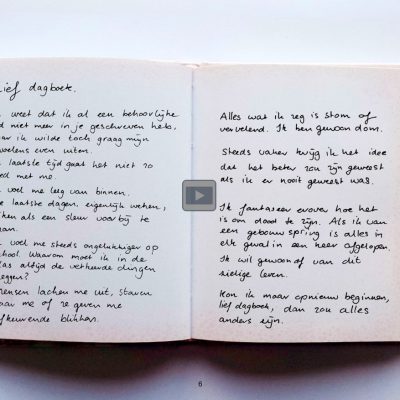 lief dagboek.
weet dat ik al een behoorlijke
niet meer in je geschreven heb,
ik wilde toch graag mijn
even uiten.
laatste tijd gaat het niet zo
met me.
voel me leeg van binnen.
laatste dagen, eigenlijk weken,
als een sleur voorbij te
voel me steeds ongelukkiger op
Waarom moet ik in de
altijd de verkeerde dingen
zeggen?
mensen lachen me uit, staren
naar me of ze geven me
afkeurende blikken.
Alles wat ik zeg is stom of
vervelend. Ik ben gewoon dom.
Steeds vaker krijg ik het idee
dat het beter zou zijn geweest
als ik er nooit geweest was.
Ik fantaseer erover hoe het
is om dood te zijn. Als ik van
een gebouw spring is alles in
elk geval in een keer afgelopen.
Ik wil gewoon af van dit
zielige leven.
Kon ik maar opnieuw beginnen,
lief dagboek, dan zou alles
anders zijn.
6